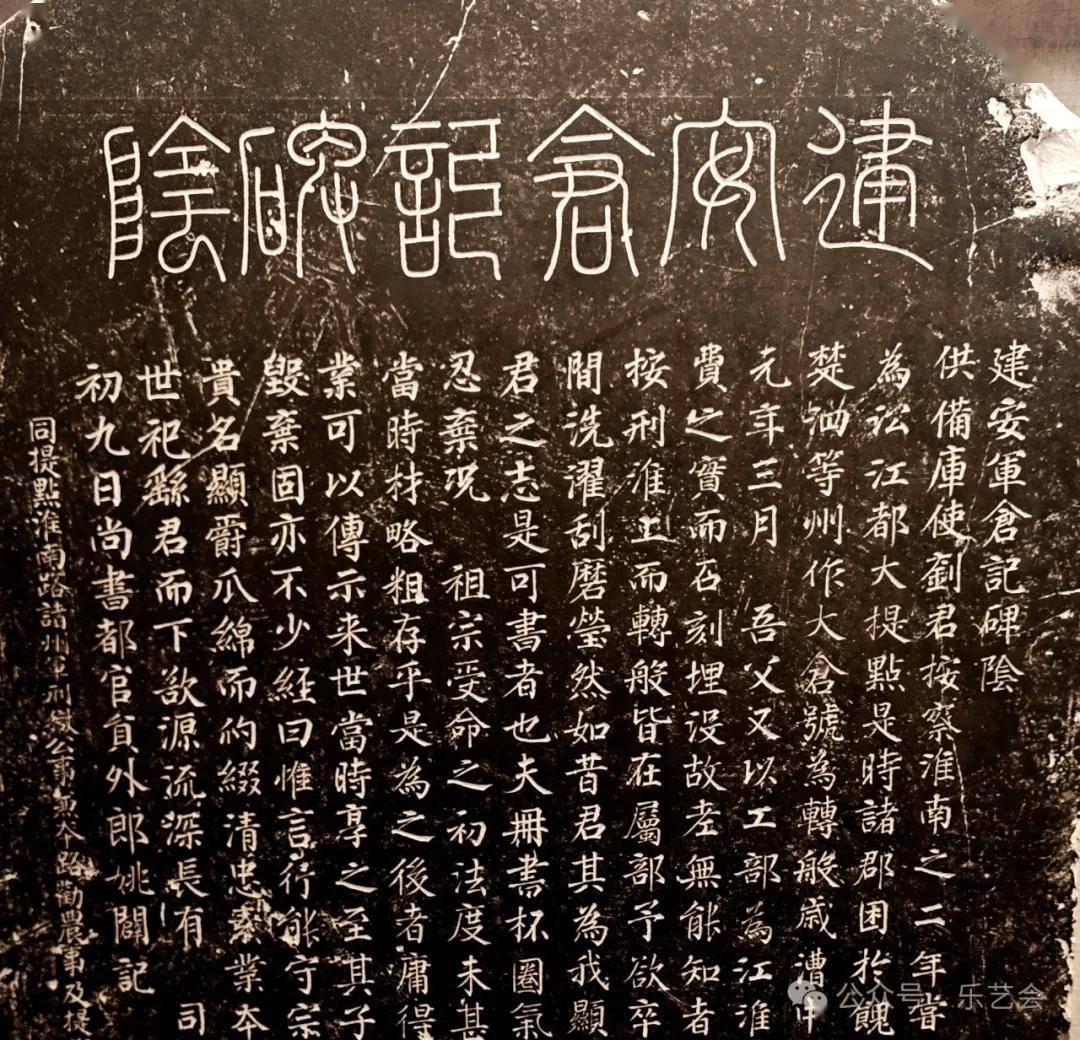 建安倉記碑陰
建安軍倉記碑陰
供備庫使劉君按察淮南之二年嘗
為訟江都大提點是時諸郡困於餽
楚泗等州作大倉號為轉般歲漕甲
元年三月 吾父又以工部為江淮
費之實而石刻埋没故老無能知者
按刑淮上而轉般皆在屬部予欲卒
間洗濯刮磨瑩然如昔君其為我顯
君之志是可書者也夫冊書杯圈氣
忍棄況 祖宗受命之初法度未甚
當時材略粗存乎是為之後者庸得
業可以傳示来世當時享之至其子
毀棄固亦不少経曰惟言行能守宗
貴名顯爵爪綿而的綴清忠素業夲
世祀繇君而下欲源流深長有 司
初九日尚書都官貟外郎姚闢記
同提點淮南路諸州軍刑獄公事兼夲路勸農事及提
公众号 乐艺会